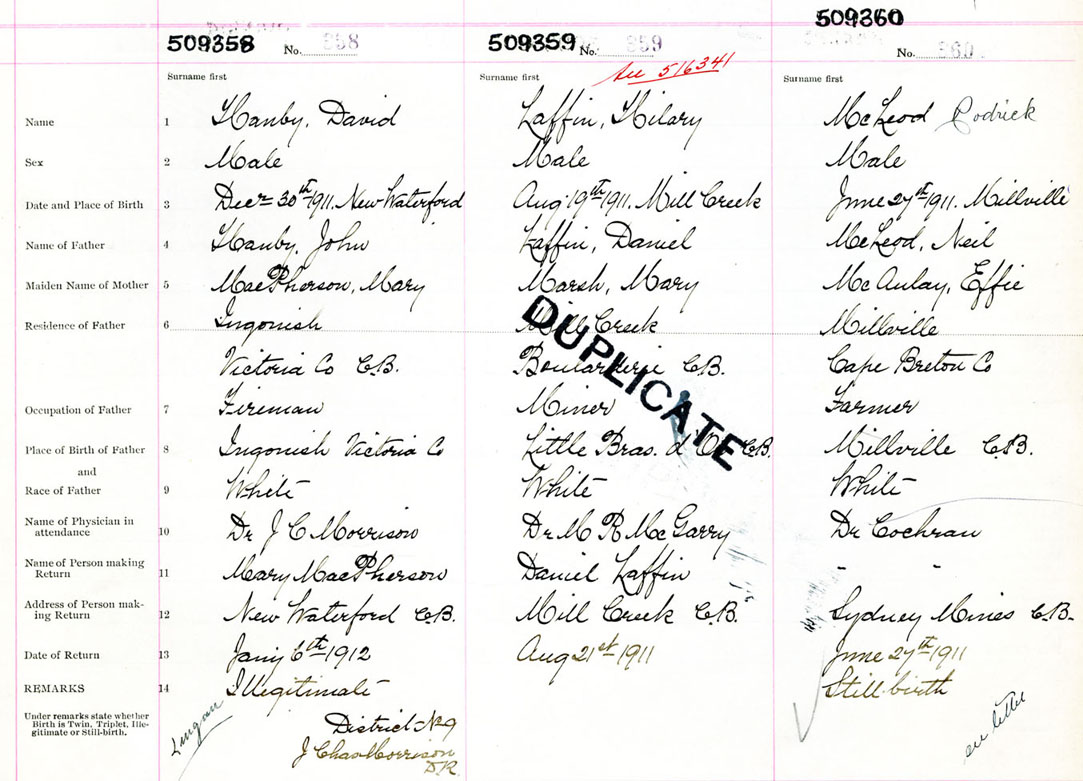 509358 No. 358
509359 No. 359
509360 No. 360
See 516341
Surname first Surname first Surname first
Name 1 Hanby, David Laffin, Hilary McLeod Rodrick
Sex 2 Male Male Male
Date and Place of Birth 3 Decr 30th 1911. New Waterford Aug 19th 1911. Mill Creek June 27th 1911. Millville
Name of Father 4 Hanby, John Laffin, Daniel McLeod, Neil
Maiden Name of Mother 5 MacPherson, Mary Marsh, Mary McAulay, Effie
Residence of Father 6 Ingonish Mill Creek Millville
Victoria Co C.B. Boularderie C.B. Cape Breton Co
DUPLICATE
Occupation of Father 7 Fireman Miner Farmer
Place of Birth of Father 8 Ingonish Victoria Co Little Bras. d'Or C.B. Millville C.B.
and
Race of Father 9 White White White
Name of Physician in
attendance 10 Dr J C Morrison Dr M R McGarry Dr Cochran
Name of Person making
Return 11 Mary MacPherson Daniel Laffin " "
Address of Person mak-
ing Return 12 New Waterford C.B. Mill Creek C.B. Sydney Mines C.B.
Date of Return 13 Jany 6th 1912 Aug 21st 1911 June 27th 1911
REMARKS 14 Illegitimate Still birth
Under remarks state whether
Birth is Twin, Triplet, Ille-
gitimate or Still-birth.
Lingan
District No 9
J Chas Morrison
D.R.
see letter